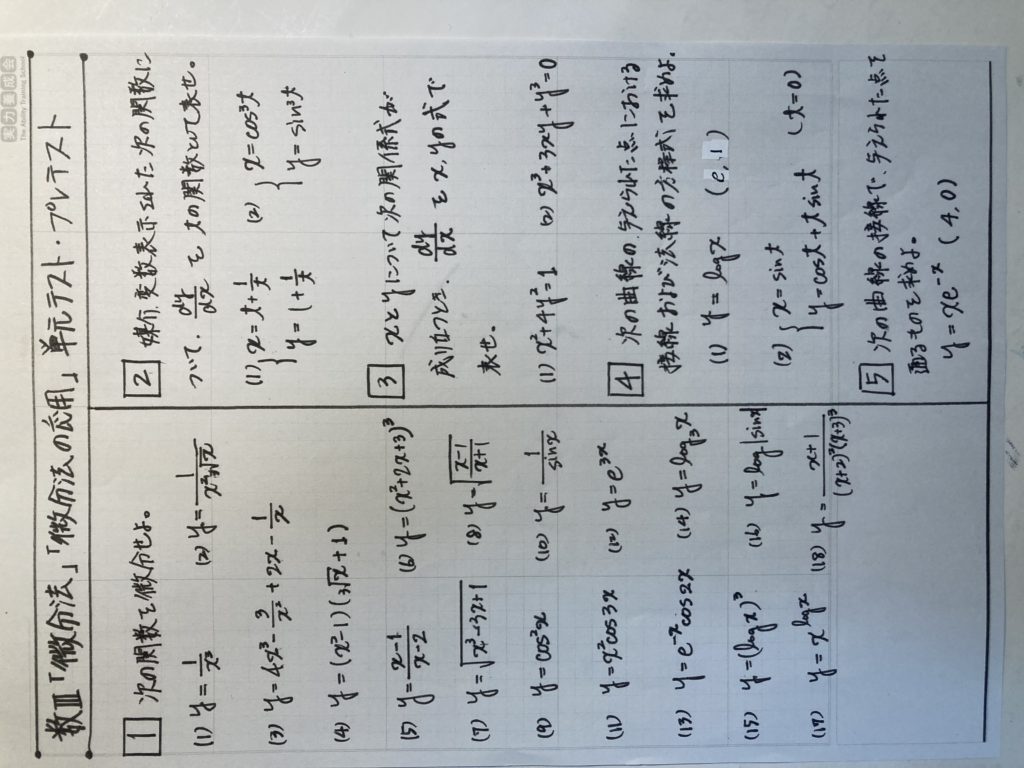 実力養成会
The Ability Training School
数Ⅲ「微分法」「微分法の応用」単元テスト・プレテスト
1 次の関数を微分せよ。
(1) y = 1/x³ (2) y = 1/(x²∛x)
(3) y = 4x³ - 3/x² + 2x - 1/x
(4) y = (x²-1)(∛x + 1)
(5) y = (x-1)/(x-2) (6) y = (x²+2x+3)³
(7) y = √(x³+3x+1) (8) y = √((x-1)/(x+1))
(9) y = cos²x (10) y = 1/sinx
(11) y = x²cos3x (12) y = e^{3x}
(13) y = e^{-x}cos2x (14) y = log₃x
(15) y = (logx)³ (16) y = log|sinx|
(17) y = x^{logx} (18) y = (x+1)/((x+2)²(x+3)³)
2 媒介変数表示された次の関数に
ついて、dy/dx を tの関数として表せ。
(1) { x = t + 1/t (2) { x = cos³t
y = 1 + 1/t y = sin³t
3 xとyについて次の関係式が
成り立つとき、dy/dx を x, yの式で
表せ。
(1) x² + 4y² = 1 (2) x³ + 3xy + y³ = 0
4 次の曲線の、与えられた点における
接線および法線の方程式を求めよ。
(1) y = logx (e, 1)
(2) { x = sint
y = cost + t sint (t = 0)
5 次の曲線の接線で、与えられた点を
通るものを求めよ。
y = xe^{-x} (4, 0)